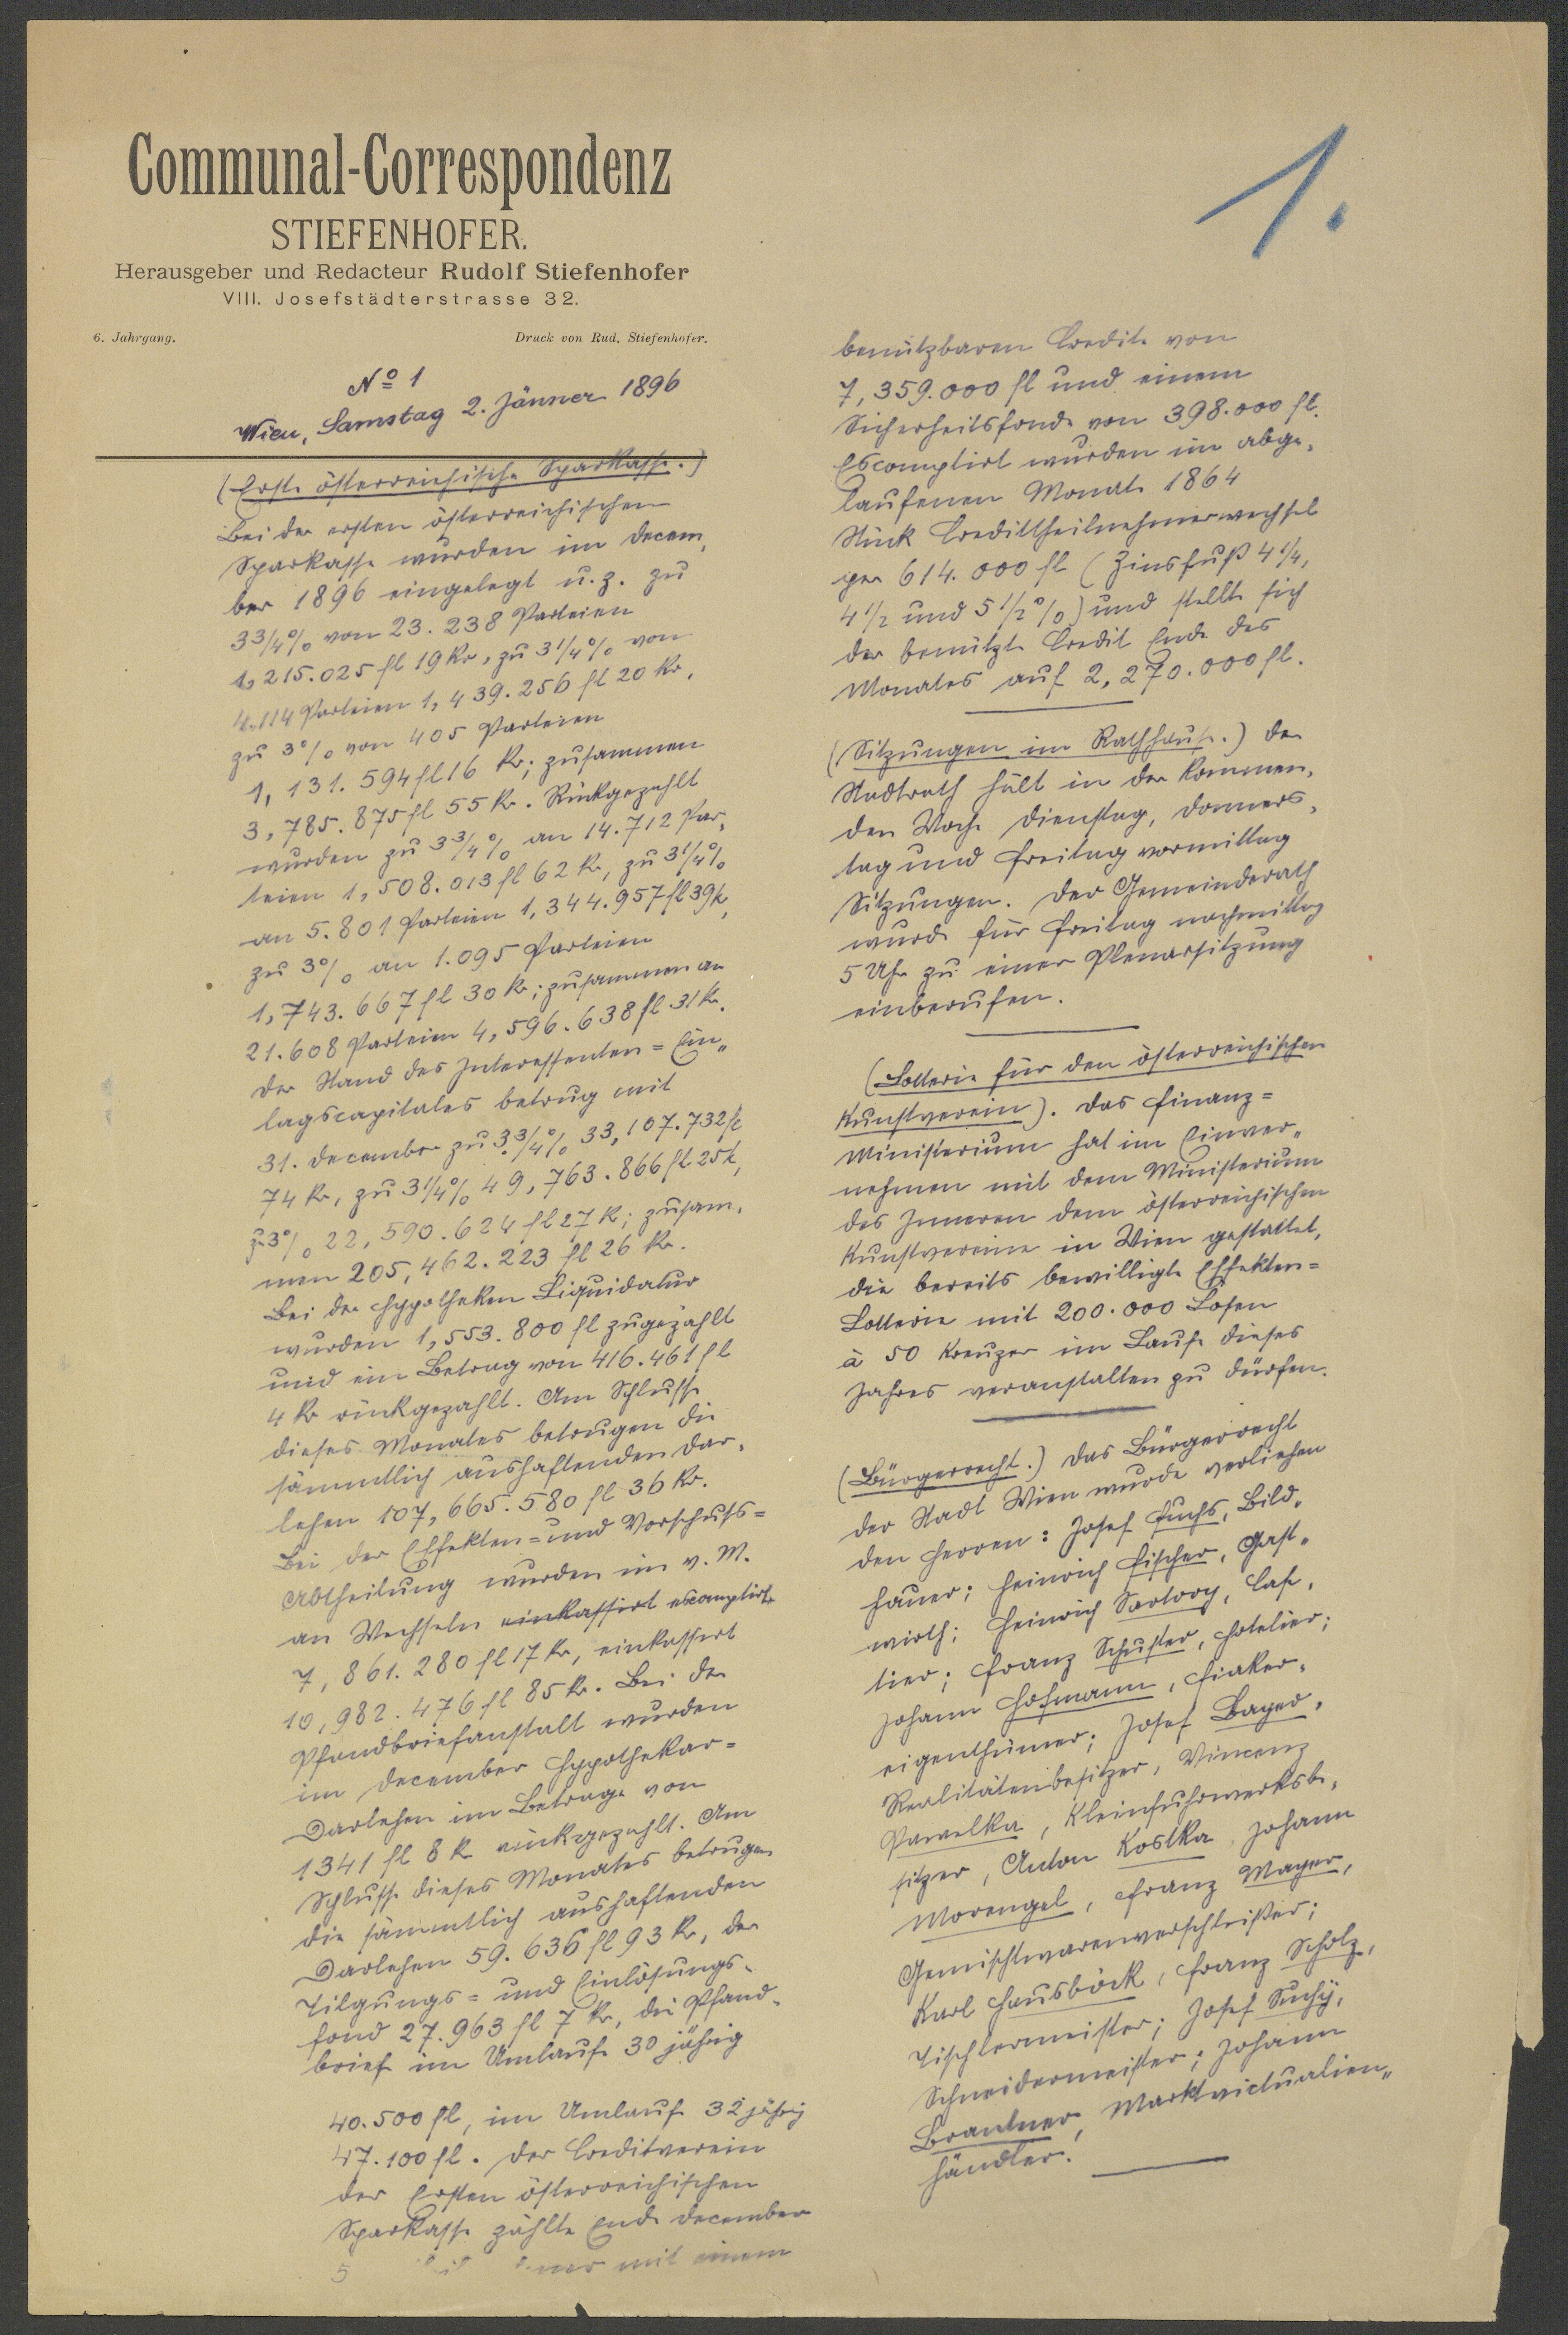 Communal-Correspondenz
STIEFENHOFER.
Herausgeber und Redacteur Rudolf Stiefenhofer
VIII. Josefstädterstrasse 32.
6. Jahrgang. Druck von Rud. Stiefenhofer.
No 1
Wien, Samstag 2. Jänner 1896
(Erste österreichische Sparkasse.)
Bei der ersten österreichischen
Sparkasse wurden im Decem„
ber 1896 eingelegt u. z. zu
3 3/4% von 23.238 Parteien
1,215.025 fl 19 Kr, zu 3 1/4% von
4.114 Parteien 1,439.256 fl 20 Kr,
zu 3% von 405 Parteien
1,131.594 fl 16 Kr; zusammen
3,785.875 fl 55 Kr. Rückgezahlt
wurden zu 3 3/4% an 14.712 Par„
teien 1,508.013 fl 62 Kr, zu 3 1/4%
an 5.801 Parteien 1,344.957 fl 39 K,
zu 3% an 1.095 Parteien
1,743.667 fl 30 Kr; zusammen an
21.608 Parteien 4,596.638 fl 31 Kr.
Der Stand des Interessenten=Ein„
lagscapitales betrug mit
31. December zu 3 3/4% 33,107.732 fl
74 Kr, zu 3 1/4% 49,763.866 fl 25 K,
z. 3% 22,590.624 fl 27 K; zusam„
men 205,462.223 fl 26 Kr.
Bei der Hypotheken Liquidatur
wurden 1,553.800 fl zugezählt
und ein Betrag von 416.461 fl
4 Kr rückgezahlt. Am Schlusse
dieses Monates betrugen die
sämmtlich aushaftenden Dar„
lehen 107,665.580 fl 36 Kr.
Bei der Effekten=und Vorschuss=
Abtheilung wurden im v. M.
an Wechseln einkassirt escomptirt
7,861.280 fl 17 Kr, einkassirt
10,982.476 fl 85 Kr. Bei der
Pfandbriefanstalt wurden
im December Hypothekar=
Darlehen im Betrage von
1341 fl 8 K rückgezahlt. Am
Schlusse dieses Monates betrugen
die sämmtlich aushaftenden
Darlehen 59.636 fl 93 Kr, der
Tilgungs= und Einlösungs„
fond 27.963 fl 7 Kr, die Pfand„
brief im Umlaufe 30 jährig
40.500 fl, im Umlauf 32 jährig
47.100 fl. Der Creditverein
der Ersten österreichischen
Sparkasse zählte Ende December
5 mit einem
1.
benützbaren Credite von
7,359.000 fl und einem
Sicherheitsfonde von 398.000 fl.
Escomptirt wurden im abge„
laufenen Monate 1864
Stück Credittheilnehmerwechsel
per 614.000 fl (Zinsfuß 4 1/4,
4 1/2 und 5 1/2%) und stellte sich
der benützte Credit Ende des
Monates auf 2,270.000 fl.
(Sitzungen im Rathhause.) Der
Stadtrath hält in der kommen„
den Woche Dienstag, Donners„
tag und Freitag vormittag
Sitzungen. Der Gemeinderath
wurde für Freitag nachmittag
5 Uhr zu einer Plenarsitzung
einberufen.
(Lotterie für den österreichischen
Kunstverein). Das Finanz=
Ministerium hat im Einver„
nehmen mit dem Ministerium
des Inneren dem österreichischen
Kunstvereine in Wien gestattet,
die bereits bewilligte Effekten=
Lotterie mit 200.000 Losen
à 50 Kreuzer im Laufe dieses
Jahres veranstalten zu dürfen.
(Bürgerrecht.) Das Bürgerrecht
der Stadt Wien wurde verliehen
den Herren: Josef Fuchs, Bild„
hauer; Heinrich Fischer, Gast„
wirth; Heinrich Sartory, Cafe„
tier; Franz Schuster, Hotelier;
Johann Hofmann, Fiaker„
eigenthümer; Josef Bayer,
Realitätenbesitzer, Vincenz
Pawelka, Kleinfuhrwerksbe„
sitzer, Anton Kostka, Johann
Morengel, Franz Mayer,
Gemischtwarenverschleißer;
Karl Hausböck, Franz Scholz,
Tischlermeister; Josef Suchÿ,
Schneidermeister; Johann
Brantner, Marktvictualien„
händler.